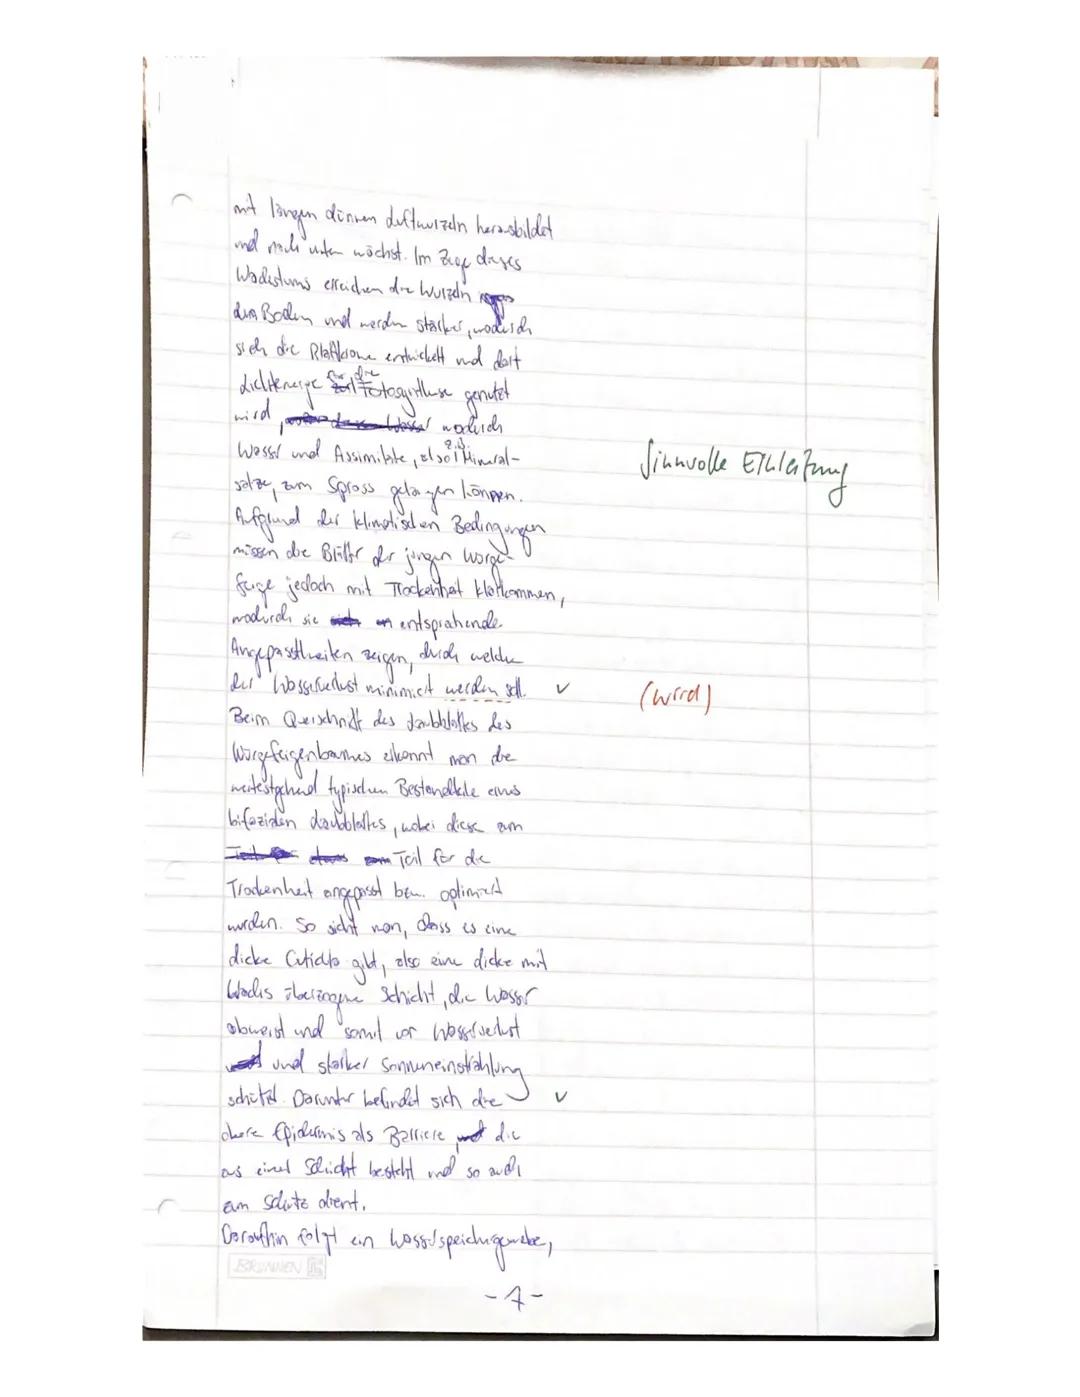 mit langen dünnen Luftwurzeln herausbildet
und nach unten wächst. Im Zuge dieses
Wachstums erreichen die Wurzeln
den Boden und werden stärker, wodurch
sich die Blattkrone entwickelt und dort
Lichtenergie für die Fotosynthese genutzt
wird, wodurch
Wasser und Assimilate, also z.B. Mineral-
salze, zum Spross gelangen können.
Aufgrund der klimatischen Bedingungen
müssen die Blätter der jungen Würge-
feige jedoch mit Trockenheit klarkommen,
wodurch sie entsprechende
Angepasstheiten zeigen, durch welche
der Wasserverlust minimiert werden soll. ✓
Beim Querschnitt des Laubblattes des
Würgefeigenbaumes erkennt man die
weitestgehend typischen Bestandteile eines
bifazialen Laubblattes, wobei diese zum
Teil für die
Trockenheit angepasst bzw. optimiert
wurden. So sieht man, dass es eine
dicke Cuticula gibt, also eine dicke mit
Wachs überzogene Schicht, die Wasser
abweist und somit vor Wasserverlust
und starker Sonneneinstrahlung
schützt. Darunter befindet sich die ✓
obere Epidermis als Barriere, die
aus einer Schicht besteht und so auch
zum Schutz dient.
Daraufhin folgt ein Wasserspeichergewebe,
BRUNNEN
-1-
Sinnvolle Einleitung
(wird)